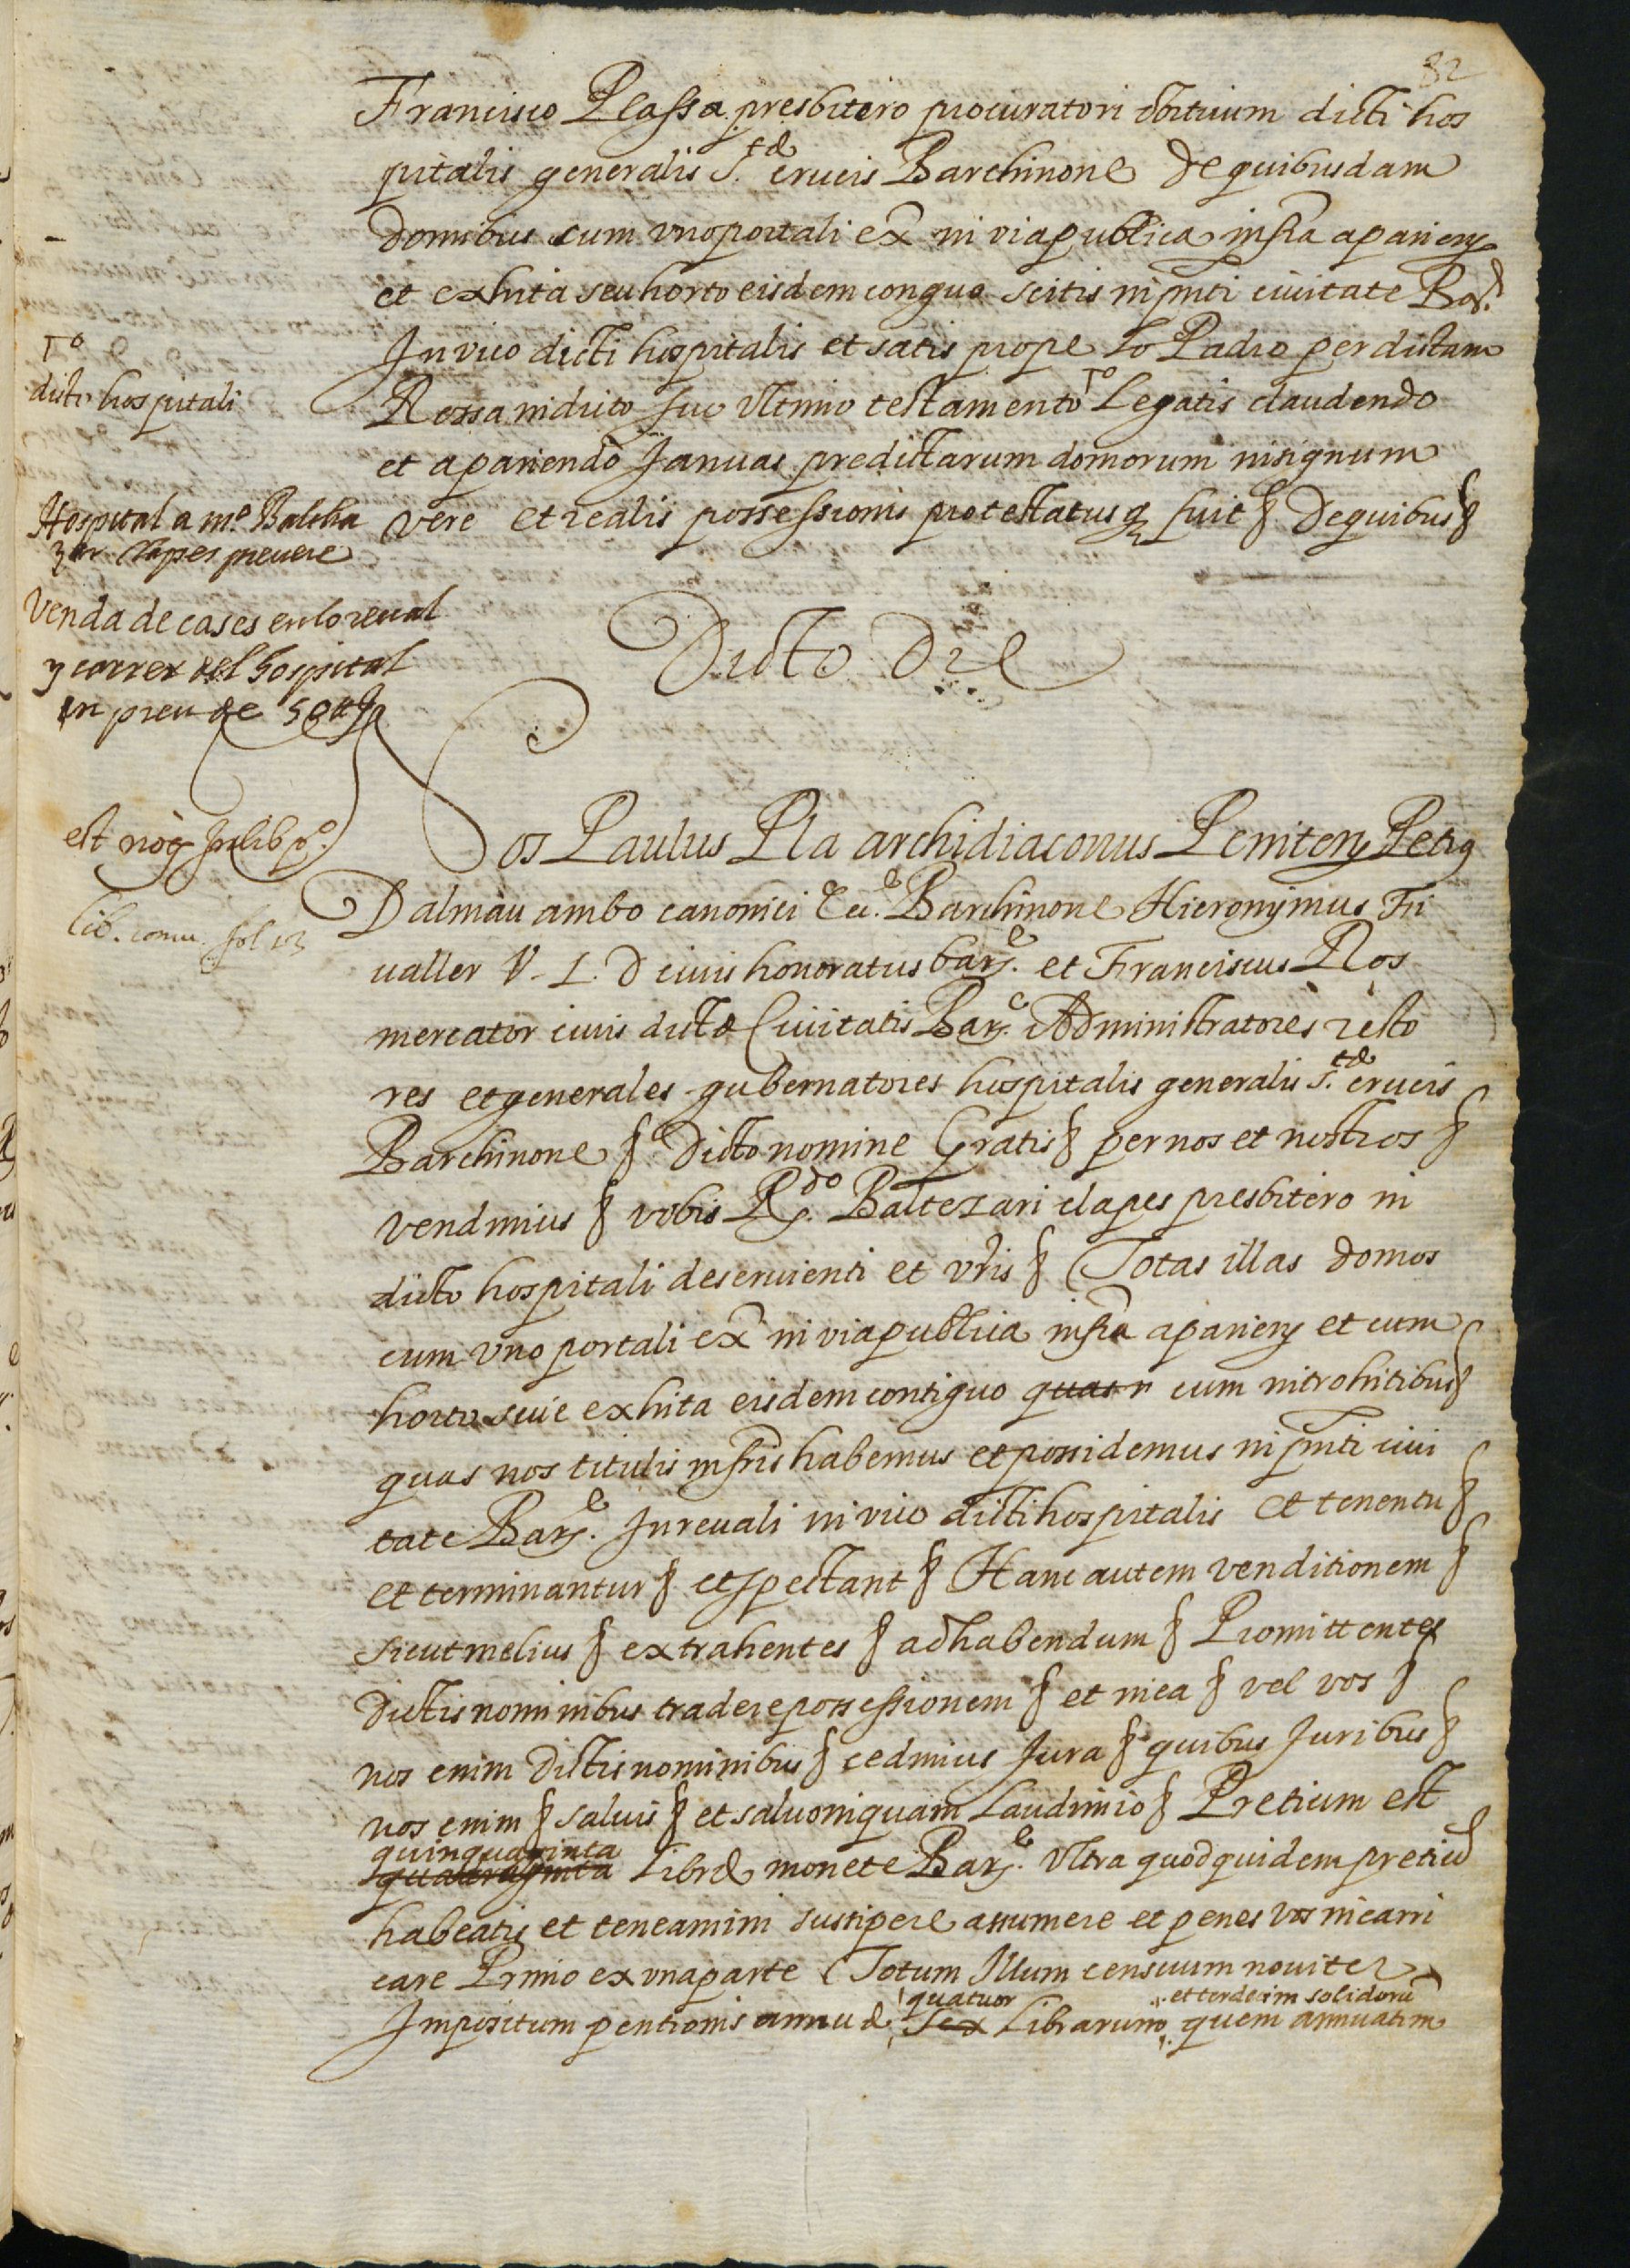 82
Francisco Plassa presbitero procuratori obituum dicti hos
pitalis generalis S.tæ crucis Barchinone de quibusdam
domibus cum uno portali ex.ª in via publica infra aparien.
et exhita seu horto eisdem contiguo scitis in pnti ciuitate Bar.
In vico dicti hospitalis et satis prope lo Padro per dictam
Rossam in dicto suo vltimo testamento Tº Legatis claudendo
et apariendo Januas predictarum domorum in signum
vere et realis possessionis protestatusq fuit § De quibus §
Tº
dicto hospitali
Hospital a mº Baltha
zar Clapes preuere
Venda de cases en lo reual
y carrer del hospital
en preu de 50 ll
est nog In lib pº.
Lib. comu. fol 13
Dicto Die
Nos Paulus Pla archidiaconus Peniten. Petrus
Dalmau ambo canonici Ecc.e Barchinone Hieronymus Fi
ualler V. I. D ciuis honoratus bar.e et Franciscus Ros
mercator ciuis dictæ Ciuitatis Bar.e Administratores recto
res et generales gubernatores hospitalis generalis S.tæ crucis
Barchinone § Dicto nomine Gratis § per nos et nostros §
Vendimus § vobis R.do Baltezari clapes presbitero in
dicto hospitali deseruienti et vris § Totas illas domos
cum vno portali ex.ª in via publica infra aparien. et cum
horto siue exhita eisdem contiguo quas n cum introhitibus §
quas nos titulis infris habemus et possidemus in pnti ciui
tate Bar.e In reuali in vico dicti hospitalis et tenentu §
et terminantur § et spectant § Hanc autem venditionem §
sicut melius § extrahentes § ad habendum § Promittentes
dictis nominibus tradere possessionem § et inea § vel vos §
nos enim dictis nominibus § cedimus Jura § quibus Juribus §
nos enim § saluis § et saluo iniquam Laudimio § Pretium est
quinquaginta
quadraginta Libræ monete Bar.e Vltra quod quidem pretiu
habeatis et teneamini suscipere assumere et penes vos incarri
care Primo ex vna parte Totum Illum censuum nouiter
quatuor et terdecim solidoru
Impositum pentionis annuæ sex Librarum quem annuatim